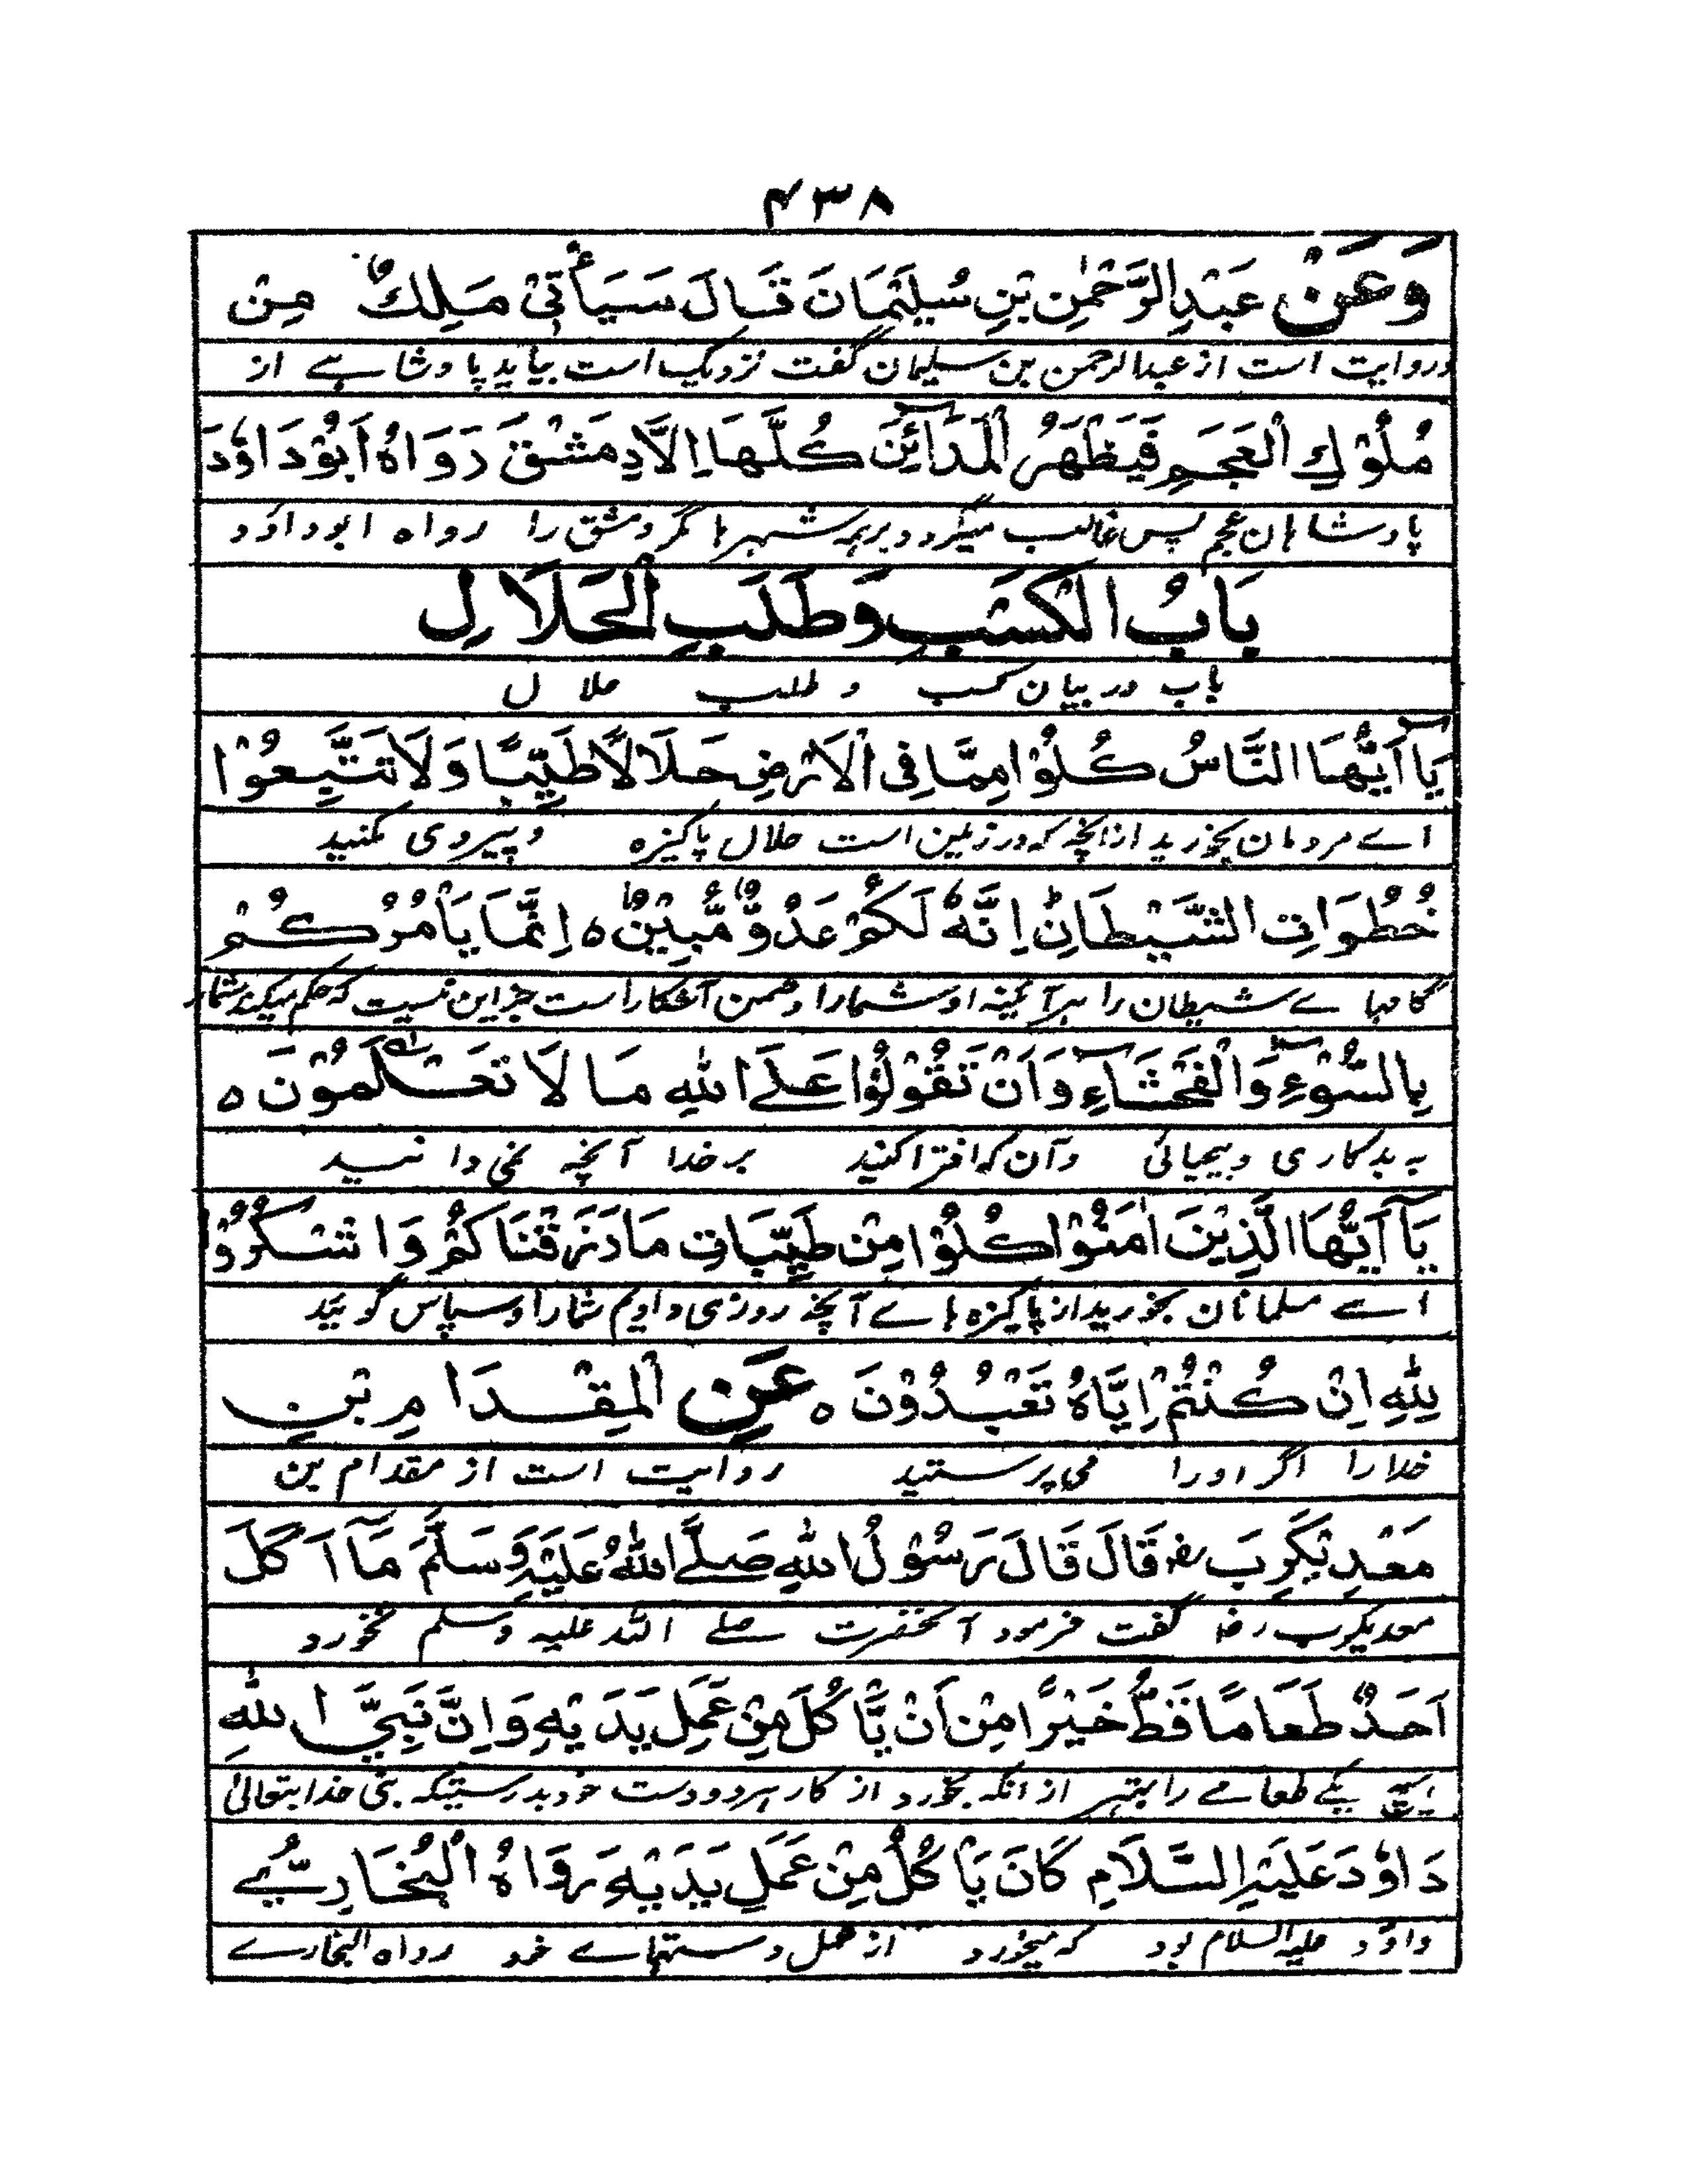 ۴۳۸
وَعَنْ عَبْدِالرَّحْمٰنِ بْنِ سُلَيْمَانَ قَالَ سَيَأْتِيْ مَلِكٌ مِنْ
وروایت است از عبدالرحمن بن سلیمان گفت نزدیک است بیاید پادشاہے از
مُلُوْكِ الْعَجَمِ فَيَظْهَرُ الْمَدَآئِنَ كُلَّهَا اِلَّا دِمَشْقَ رَوَاهُ اَبُوْدَاوٗدَ
پادشاہان عجم پس غالب میگردد برہمہ شہرہا مگر دمشق را رواہ ابوداؤد
بَابُ الْكَسْبِ وَطَلَبِ الْحَلَالِ
باب در بیان کسب و طلب حلال
يَآ اَيُّهَا النَّاسُ كُلُوْا مِمَّا فِى الْاَرْضِ حَلَالًا طَيِّبًا وَلَا تَتَّبِعُوْا
اے مردمان بخورید ازانچہ کہ در زمین است حلال پاکیزہ و پیروی مکنید
خُطُوَاتِ الشَّيْطَانِ اِنَّهٗ لَكُمْ عَدُوٌّ مُّبِيْنٌ ه اِنَّمَا يَاْمُرُكُمْ
گامہاے شیطان را ہر آئینہ او شمارا دشمن آشکارا است جز این نیست کہ حکم میکند شمارا
بِالسُّوْٓءِ وَالْفَحْشَآءِ وَاَنْ تَقُوْلُوْا عَلَے اللهِ مَا لَا تَعْلَمُوْنَ ه
بہ بدکاری و بیحیائی وآن کہ افترا کنید بر خدا آنچہ نمی دانید
يَآ اَيُّهَا الَّذِيْنَ اٰمَنُوْا كُلُوْا مِنْ طَيِّبَاتِ مَا رَزَقْنَاكُمْ وَاشْكُرُوْا
اے مسلمانان بخورید از پاکیزہ ہاے آنچہ روزی دادیم شمارا و سپاس گوئید
لِلّٰهِ اِنْ كُنْتُمْ اِيَّاهُ تَعْبُدُوْنَ ه عَنِ الْمِقْدَامِ بْنِ
خدا را اگر اورا می پرستید روایت است از مقدام بن
مَعْدِيْكَرِبَ رض قَالَ قَالَ رَسُوْلُ اللهِ صَلَّے اللهُ عَلَيْهِ وَسَلَّمَ مَآ اَكَلَ
معدیکرب رض گفت فرمود آنحضرت صلے اللہ علیہ وسلم نخورد
اَحَدٌ طَعَامًا قَطُّ خَيْرًا مِنْ اَنْ يَّاْكُلَ مِنْ عَمَلِ يَدَيْهِ وَاِنَّ نَبِيَّ اللهِ
ہیچ یکے طعامے را بہتر از انکہ بخورد از کار ہر دو دست خود بدرستیکہ نبی خدایتعالیٰ
دَاوٗدَ عَلَيْهِ السَّلَامِ كَانَ يَاْكُلُ مِنْ عَمَلِ يَدَيْهِ رَوَاهُ الْبُخَارِيُّ
داؤد علیہ السلام بود کہ میخورد از عمل دستہاے خود رواہ البخارے